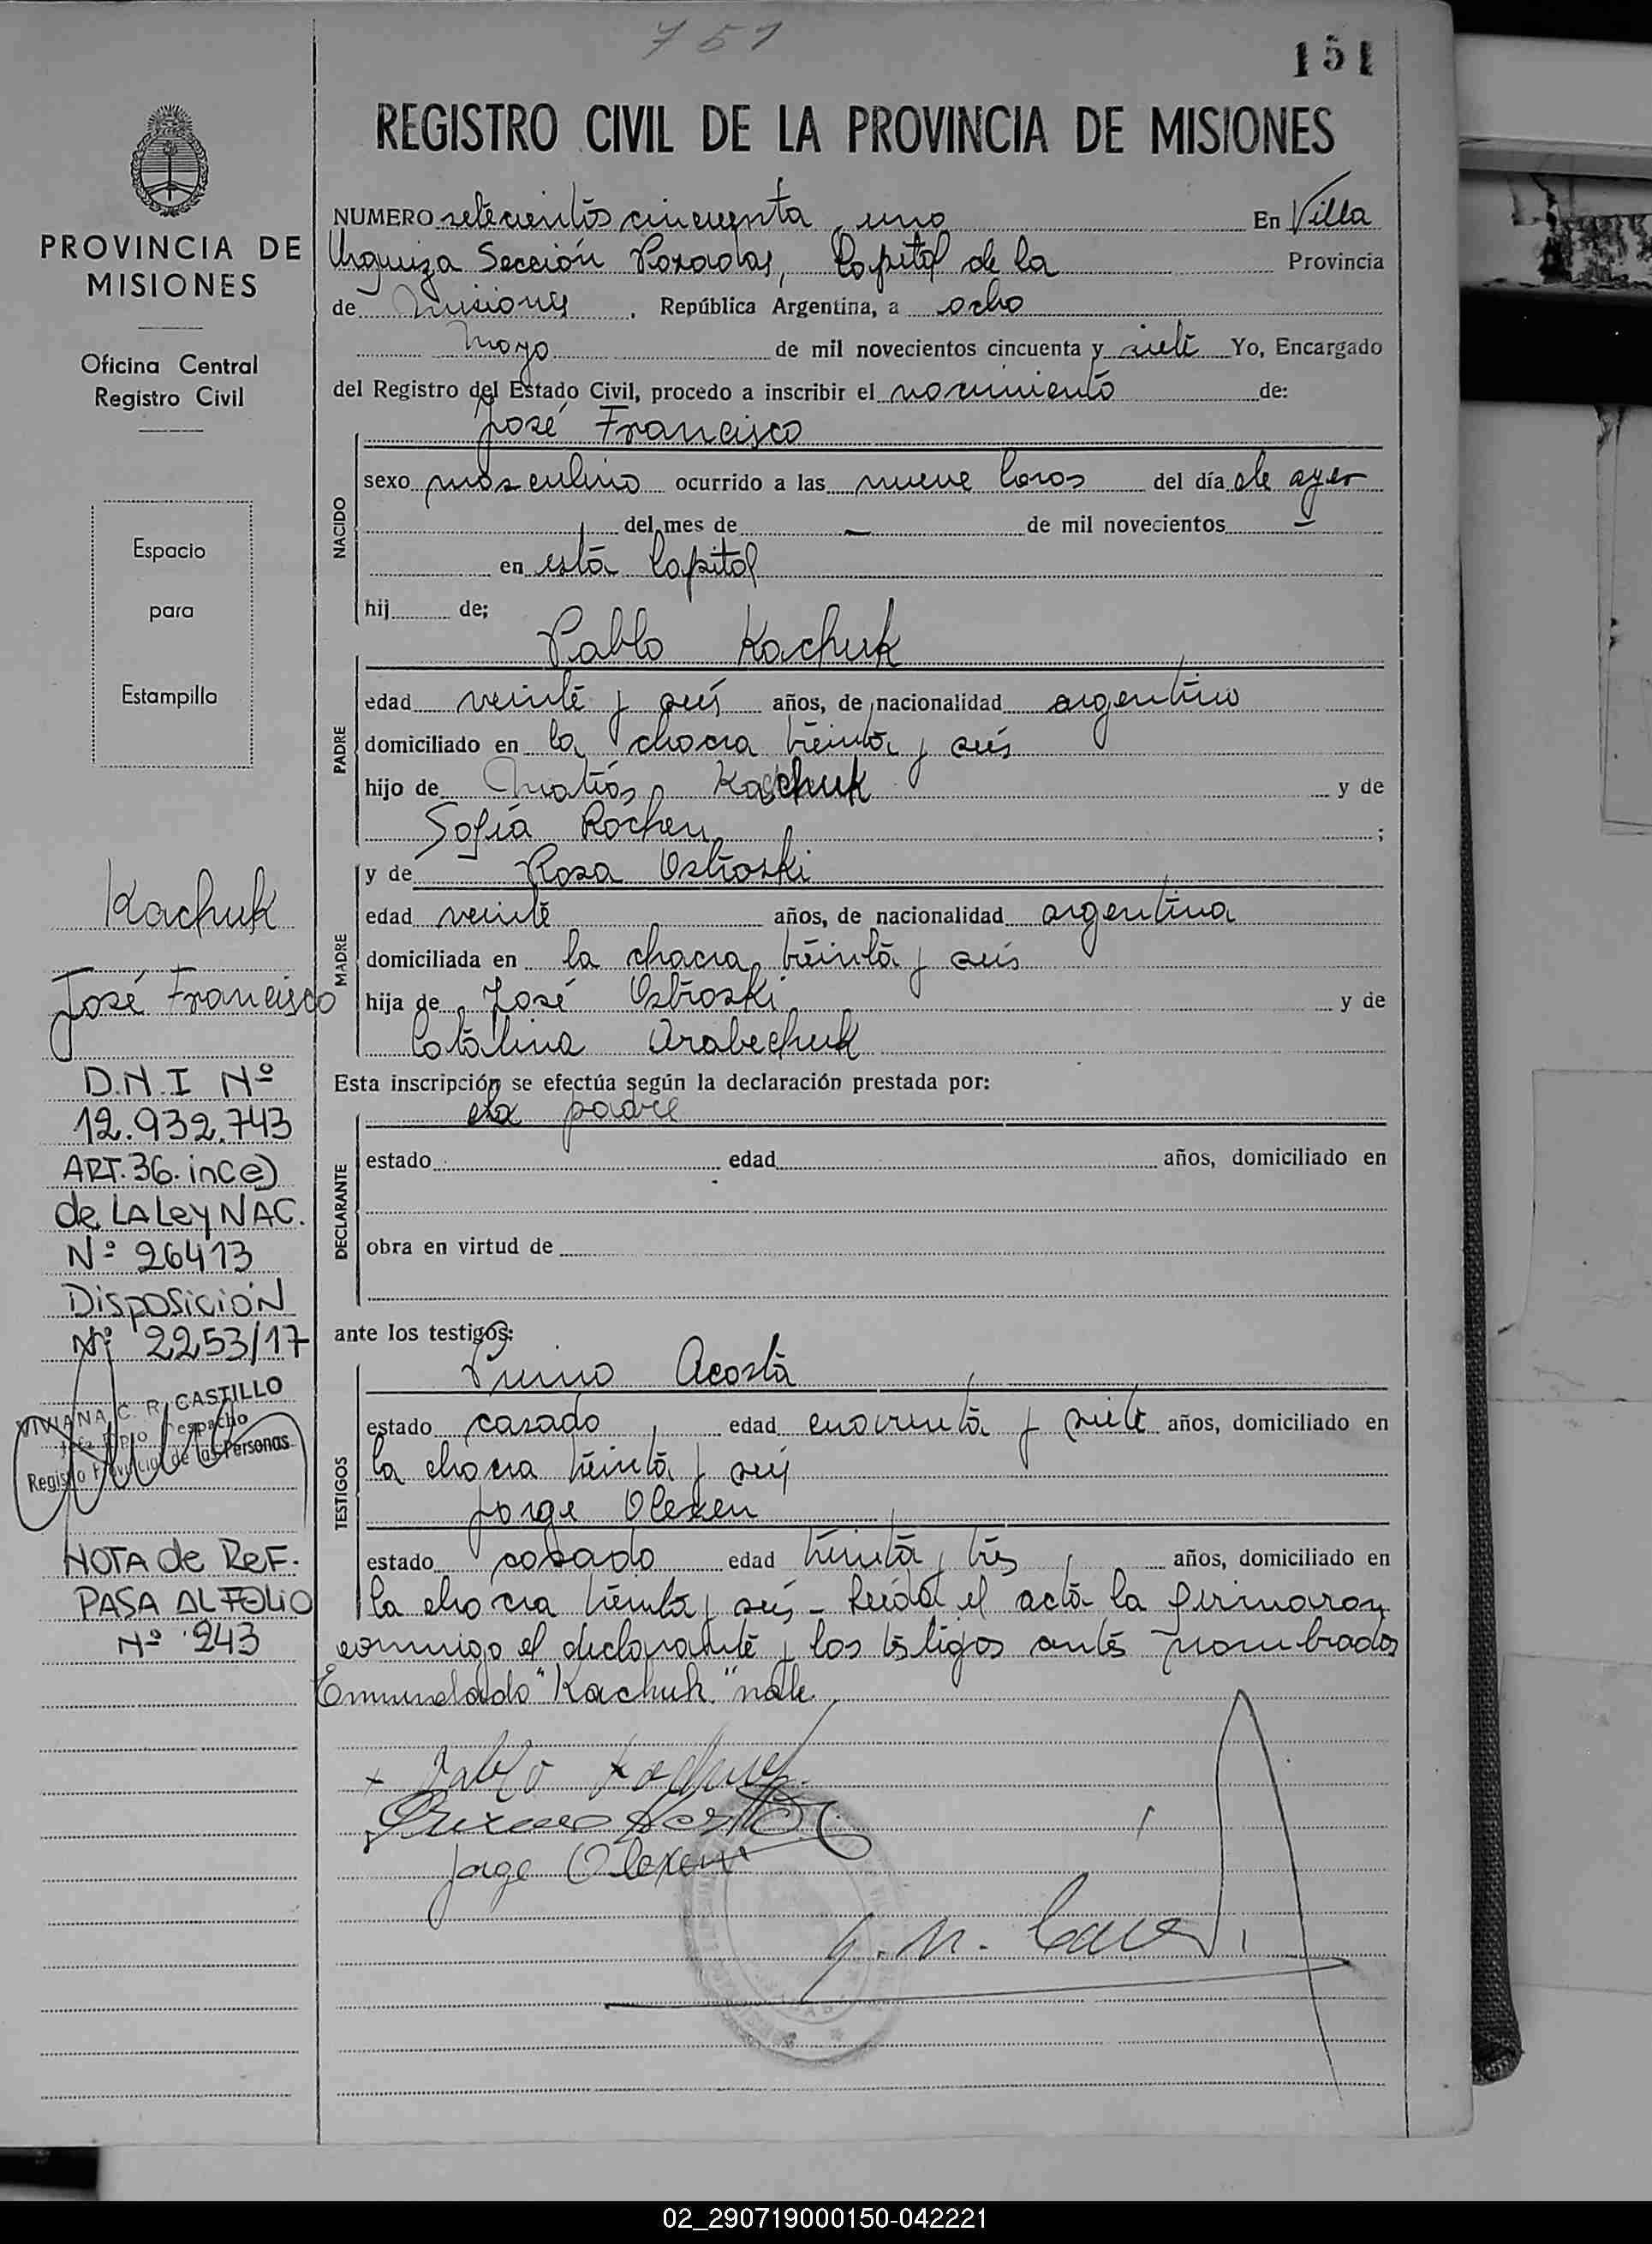 751
151
REGISTRO CIVIL DE LA PROVINCIA DE MISIONES
PROVINCIA DE
MISIONES
Oficina Central
Registro Civil
Espacio
para
Estampilla
Kachuk
José Francisco
D.N.I Nº
12.932.743
ART. 36. inc e)
de LA Ley NAC.
Nº 26413
Disposición
Nº 2253/17
VIVIANA C. R. CASTILLO
Jefa Dpto Despacho
Registro Provincial de las Personas
NOTA de Ref.
PASA AL FOLIO
Nº 243
NUMERO setecientos cincuenta y uno En Villa
Urquiza Sección Posadas, Capital de la Provincia
de Misiones, República Argentina, a ocho
Mayo de mil novecientos cincuenta y siete Yo, Encargado
del Registro del Estado Civil, procedo a inscribir el nacimiento de:
NACIDO
José Francisco
sexo masculino ocurrido a las nueve horas del día de ayer
del mes de — de mil novecientos —
en esta Capital
hij de;
PADRE
Pablo Kachuk
edad veinte y seis años, de nacionalidad argentino
domiciliado en la chacra treinta y seis
hijo de Matias Kachuk y de
Sofia Rochen ;
MADRE
y de Rosa Ostroski
edad veinte años, de nacionalidad argentina
domiciliada en la chacra treinta y seis
hija de José Ostroski y de
Catalina Arabechuk
Esta inscripción se efectúa según la declaración prestada por:
DECLARANTE
el padre
estado edad años, domiciliado en
obra en virtud de
ante los testigos:
TESTIGOS
Primo Acosta
estado casado edad cuarenta y siete años, domiciliado en
la chacra treinta y seis
Jorge Olexen
estado casado edad treinta y tres años, domiciliado en
la chacra treinta y seis - Leida el acta la firmaron
conmigo el declarante y los testigos antes nombrados
Enmendado "Kachuk" vale.
Pablo Kachuk
Acosta
Jorge Olexen
02_290719000150-042221